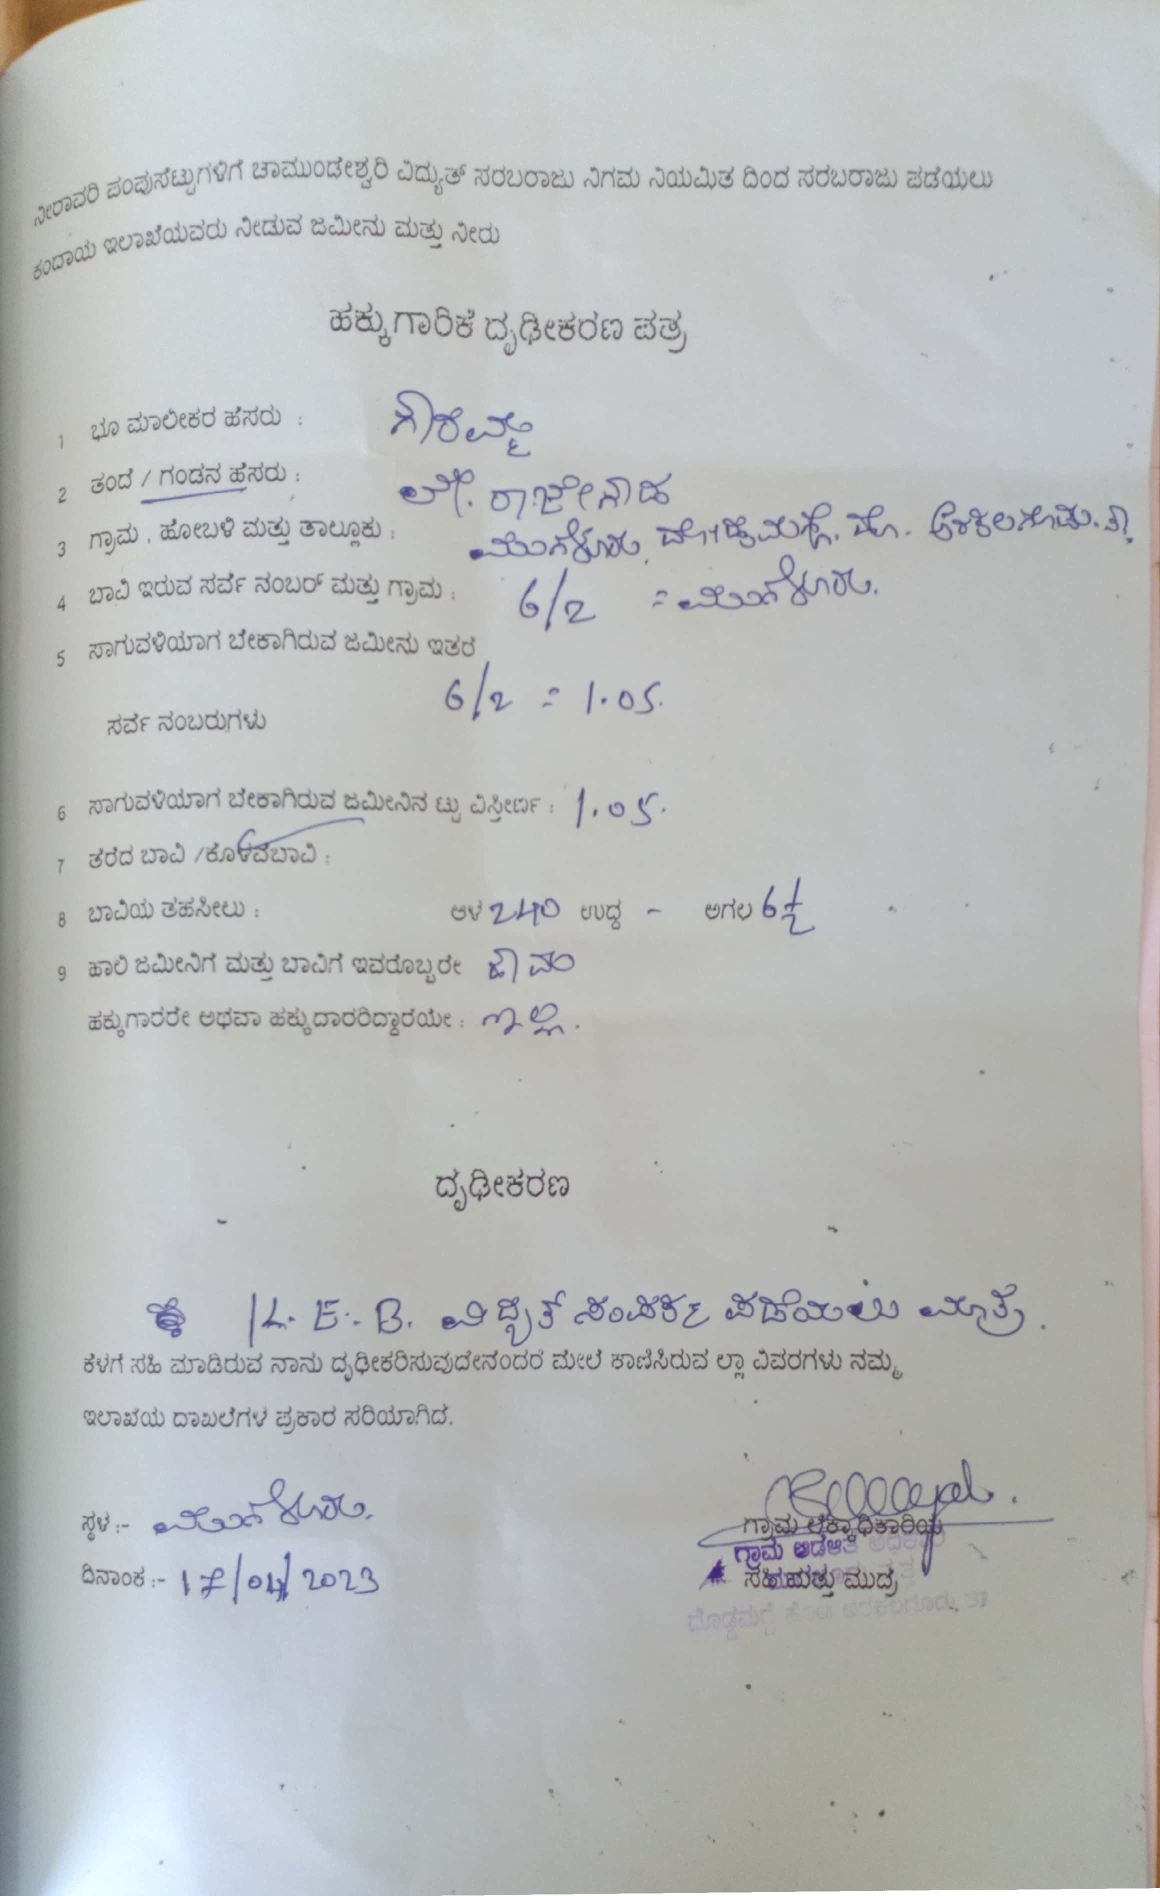 ನೀರಾವರಿ ಪಂಪುಸೆಟ್ಟುಗಳಿಗೆ ಚಾಮುಂಡೇಶ್ವರಿ ವಿದ್ಯುತ್ ಸರಬರಾಜು ನಿಗಮ ನಿಯಮಿತ ದಿಂದ ಸರಬರಾಜು ಪಡೆಯಲು
ಕಂದಾಯ ಇಲಾಖೆಯವರು ನೀಡುವ ಜಮೀನು ಮತ್ತು ನೀರು
ಹಕ್ಕುಗಾರಿಕೆ ದೃಢೀಕರಣ ಪತ್ರ
1 ಭೂ ಮಾಲೀಕರ ಹೆಸರು : ಗೌರಮ್ಮ
2 ತಂದೆ / ಗಂಡನ ಹೆಸರು : ಲೇ. ರಾಜೇಗೌಡ
3 ಗ್ರಾಮ , ಹೋಬಳಿ ಮತ್ತು ತಾಲ್ಲೂಕು : ಮುಗಳೂರು, ದೊಡ್ಡಮಗ್ಗೆ, ಹೋ. ಅರಕಲಗೂಡು. ತಾ,
4 ಬಾವಿ ಇರುವ ಸರ್ವೆ ನಂಬರ್ ಮತ್ತು ಗ್ರಾಮ : 6/2 = ಮುಗಳೂರು.
5 ಸಾಗುವಳಿಯಾಗ ಬೇಕಾಗಿರುವ ಜಮೀನು ಇತರ
6/2 = 1.05.
ಸರ್ವೆ ನಂಬರುಗಳು
6 ಸಾಗುವಳಿಯಾಗ ಬೇಕಾಗಿರುವ ಜಮೀನಿನ ಟ್ಟು ವಿಸ್ತೀರ್ಣ : 1.05.
7 ತರೆದ ಬಾವಿ /ಕೊಳವೆಬಾವಿ :
8 ಬಾವಿಯ ತಹಸೀಲು : ಆಳ 240 ಉದ್ದ - ಅಗಲ 6½
9 ಹಾಲಿ ಜಮೀನಿಗೆ ಮತ್ತು ಬಾವಿಗೆ ಇವರೊಬ್ಬರೇ ಹೌದು
ಹಕ್ಕುಗಾರರೇ ಅಥವಾ ಹಕ್ಕುದಾರರಿದ್ದಾರೆಯೇ : ಇಲ್ಲ.
ದೃಢೀಕರಣ
K. E. B. ವಿದ್ಯುತ್ ಸಂಪರ್ಕ ಪಡೆಯಲು ಮಾತ್ರ.
ಕೆಳಗೆ ಸಹಿ ಮಾಡಿರುವ ನಾನು ದೃಢೀಕರಿಸುವುದೇನಂದರೆ ಮೇಲೆ ಕಾಣಿಸಿರುವ ಲ್ಲಾ ವಿವರಗಳು ನಮ್ಮ
ಇಲಾಖೆಯ ದಾಖಲೆಗಳ ಪ್ರಕಾರ ಸರಿಯಾಗಿದೆ.
ಸ್ಥಳ :- ಮುಗಳೂರು.
ದಿನಾಂಕ :- 17/04/2023
ಗ್ರಾಮ ಲೆಕ್ಕಾಧಿಕಾರಿಯ
ಗ್ರಾಮ ಆಡಳಿತ ಅಧಿಕಾರಿ
ಸಹಿ ಮತ್ತು ಮುದ್ರೆ
ದೊಡ್ಡಮಗ್ಗೆ ಹೋಬಳಿ ಅರಕಲಗೂಡು ತಾ